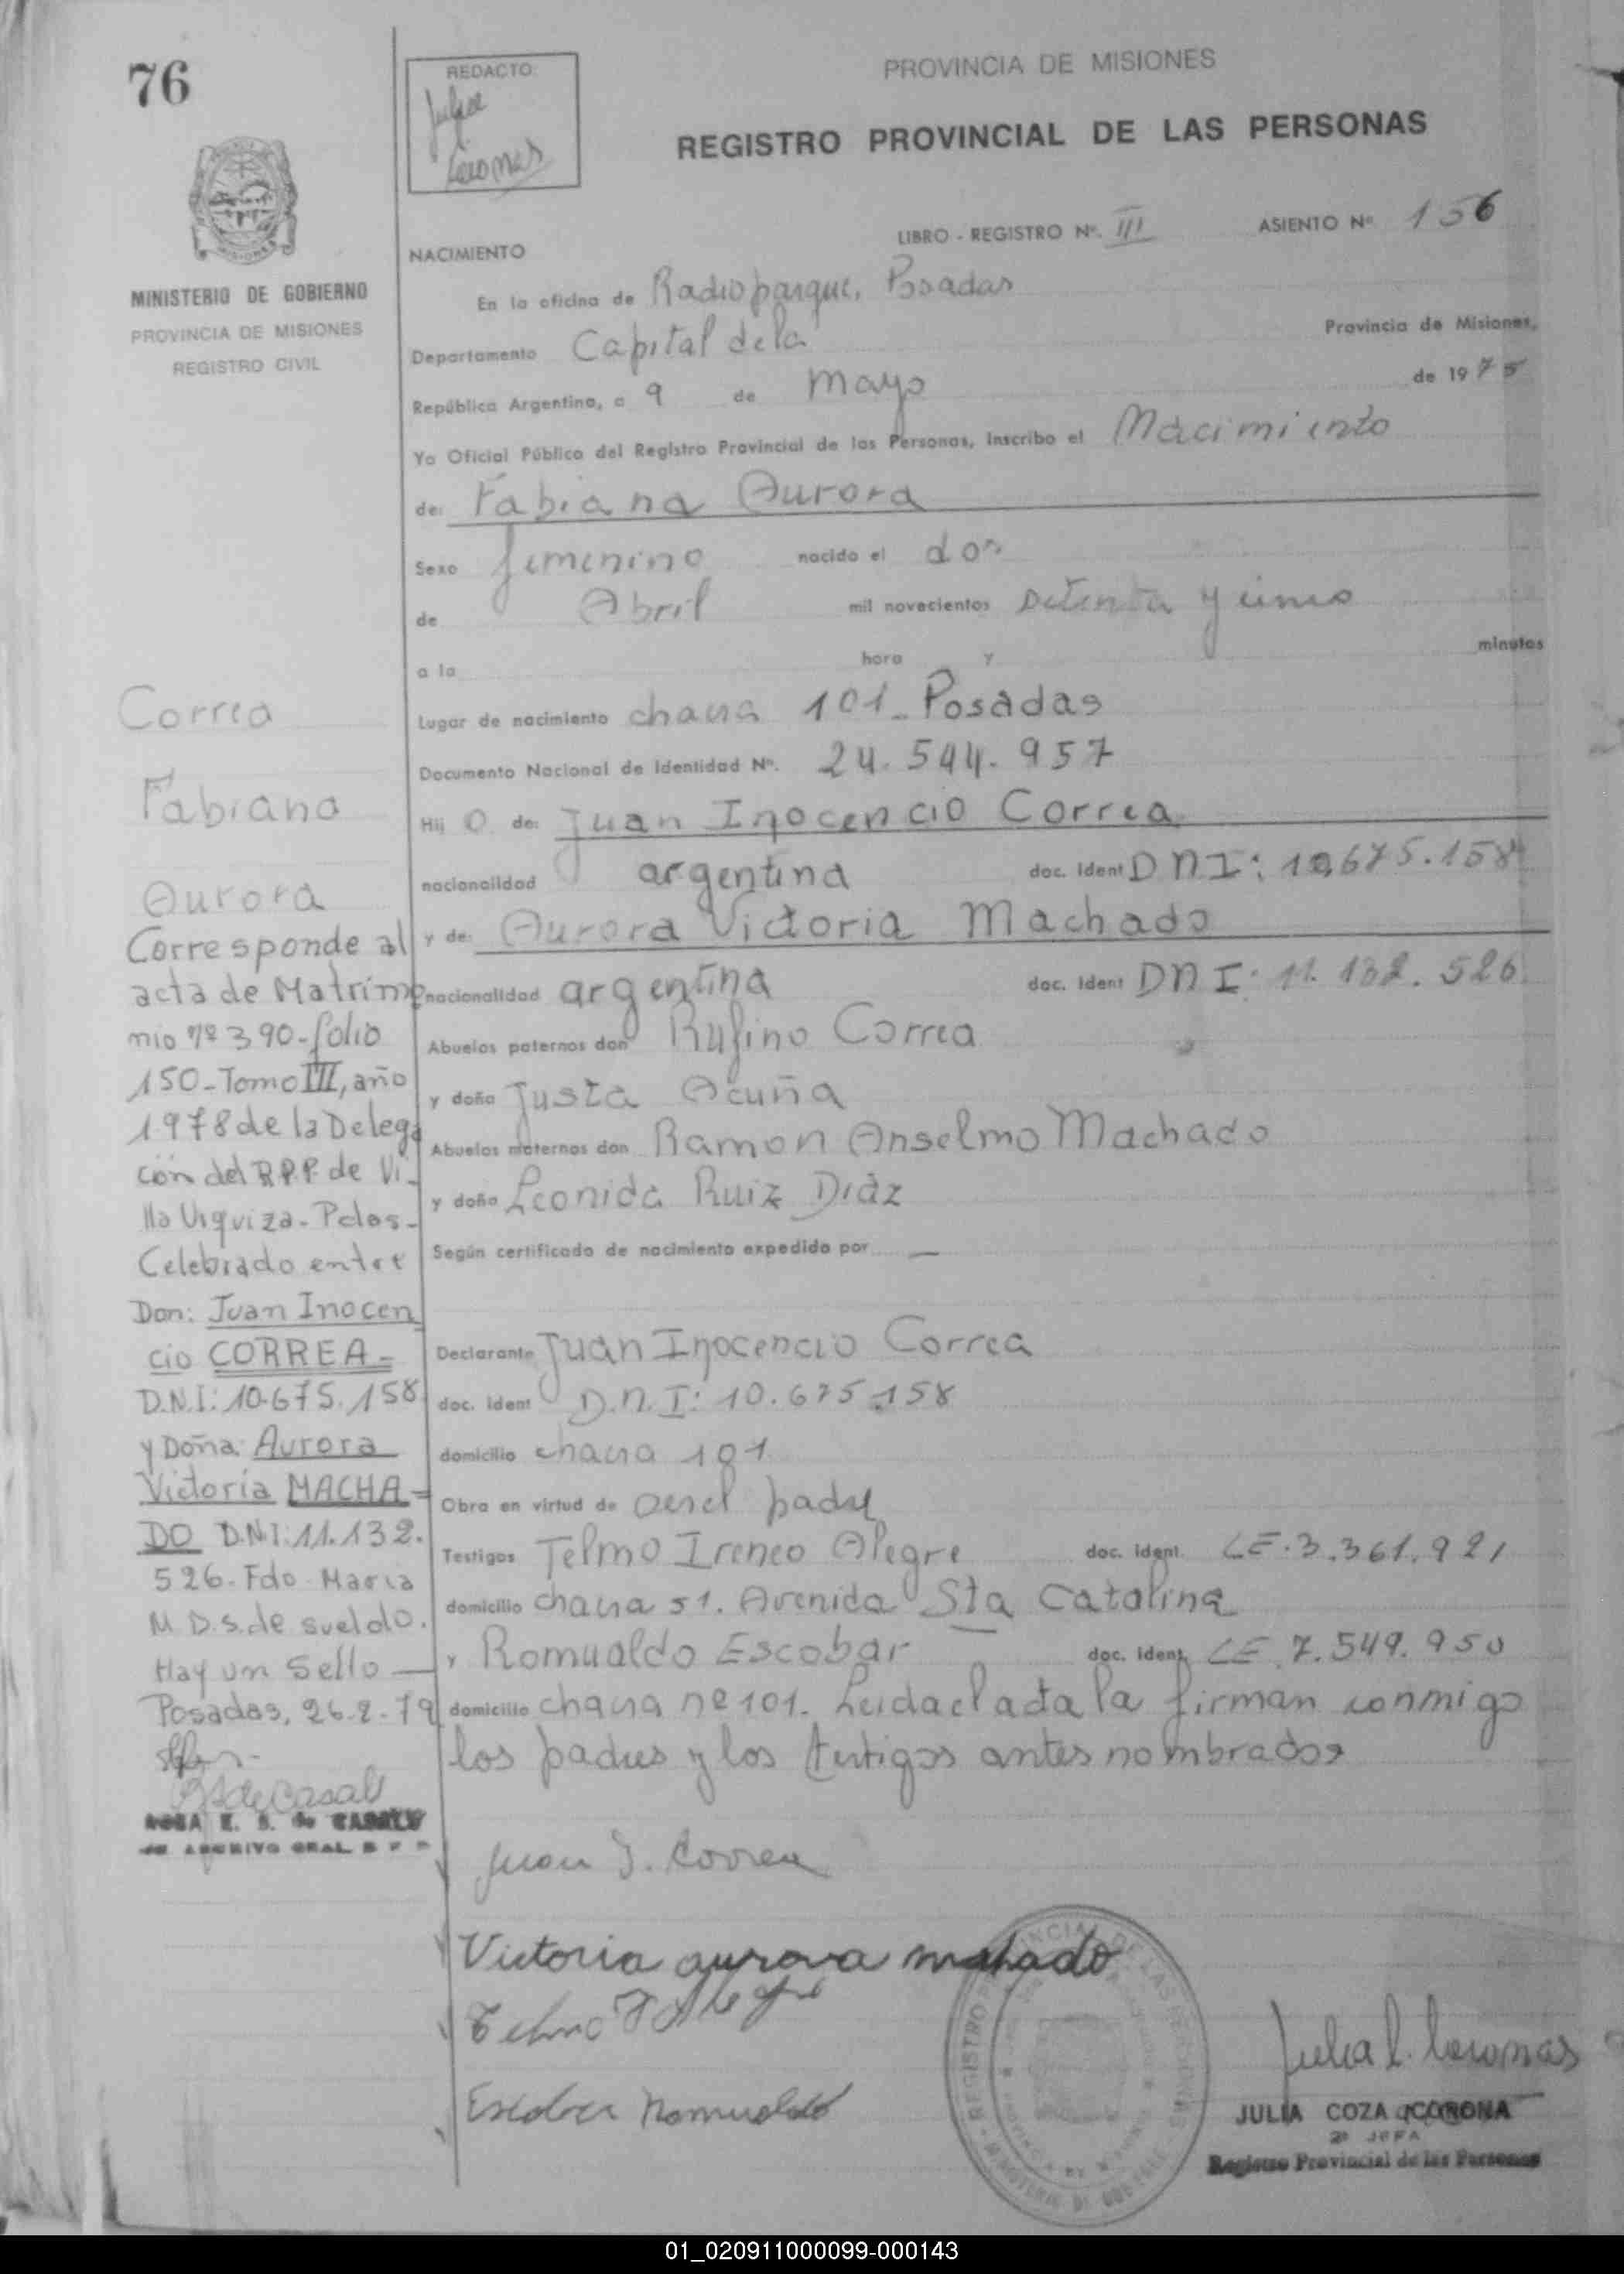 76
REDACTO
PROVINCIA DE MISIONES
REGISTRO PROVINCIAL DE LAS PERSONAS
LIBRO - REGISTRO Nº. III ASIENTO Nº 156
NACIMIENTO
MINISTERIO DE GOBIERNO
PROVINCIA DE MISIONES
REGISTRO CIVIL
En la oficina de Radioparque, Posadas
Departamento Capital de la Provincia de Misiones,
República Argentina, a 9 de Mayo de 1975
Yo Oficial Público del Registro Provincial de las Personas, Inscribo el Nacimiento
de: Fabiana Aurora
Sexo femenino nacido el dos
de Abril mil novecientos setenta y cinco
a la hora y minutos
Lugar de nacimiento chacra 101 - Posadas
Documento Nacional de Identidad Nº. 24.544.957
Hij o de: Juan Inocencio Correa
nacionalidad argentina doc. Ident D.N.I: 10.675.158
y de: Aurora Victoria Machado
nacionalidad argentina doc. Ident DNI: 11.132.526
Abuelos paternos don Rufino Correa
y doña Justa Acuña
Abuelos maternos don Ramon Anselmo Machado
y doña Leonida Ruiz Diáz
Según certificado de nacimiento expedido por —
Declarante Juan Inocencio Correa
doc. Ident D.N.I: 10.675.158
domicilio chacra 101
Obra en virtud de ser el padre
Testigos Telmo Ireneo Alegre doc. Ident. LE.3.361.921
domicilio chacra 51. Avenida Sta Catalina
y Romualdo Escobar doc. Ident. LE 7.549.950
domicilio chacra nº 101. Leida el acta la firman conmigo
los padres y los testigos antes nombrados
Correa
Fabiana
Aurora
Corresponde al
acta de Matrimo
nio nº 390-folio
150-Tomo III, año
1978 de la Delega
ción del R.P.P. de Vi-
lla Urquiza-Pdas-
Celebrado entre
Don: Juan Inocen
cio CORREA-
D.N.I: 10.675.158
y Doña: Aurora
Victoria MACHA-
DO D.N.I: 11.132.
526. Fdo Maria
M D.S. de sueldo.
Hay un Sello —
Posadas, 26-2-79
ROSA E. S. de CASALS
Juan I. Correa
Victoria aurora machado
Telmo I Alegre
Escobar Romualdo
JULIA COZA CORONA
2ª JEFA
Registro Provincial de las Personas
01_020911000099-000143